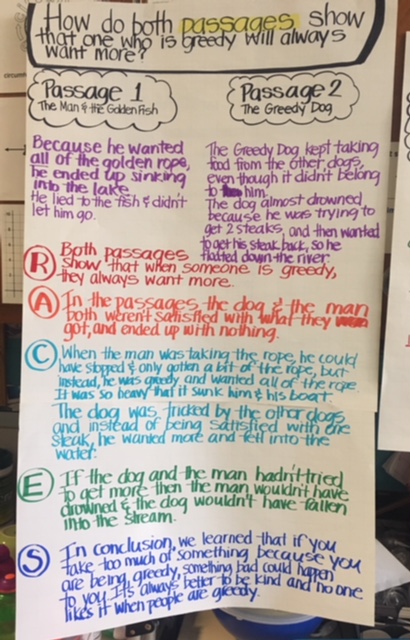 How do both passages show
that one who is greedy will always
want more?
Passage 1
The Man & the Golden Fish
Passage 2
The Greedy Dog
Because he wanted
all of the golden rope,
he ended up sinking
into the lake.
He lied to the fish & didn't
let him go.
The Greedy Dog kept taking
food from the other dogs,
even though it didn't belong
to him.
The dog almost drowned
because he was trying to
get 2 steaks, and then wanted
to get his steak back, so he
floated down the river.
R Both passages
show that when someone is greedy,
they always want more.
A In the passages the dog & the man
both weren't satisfied with what they
got, and ended up with nothing.
C When the man was taking the rope, he could
have stopped & only gotten a bit of the rope, but
instead, he was greedy and wanted all of the rope.
It was so heavy that it sunk him & his boat.
The dog was tricked by the other dogs
and instead of being satisfied with one
steak, he wanted more and fell into the
water.
E If the dog and the man hadn't tried
to get more then the man wouldn't have
drowned & the dog wouldn't have fallen
into the stream.
S In conclusion, we learned that if you
take too much of something because you
are being greedy, something bad could happen
to you. It's always better to be kind and no one
likes it when people are greedy.